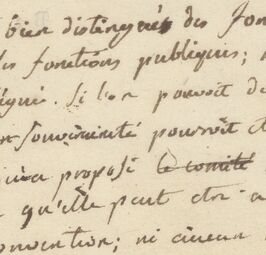 bien distingués des fon
des fonctions publiques;
si l'on pouvoit de
souveraineté pourroit et
a proposé le comité
qu'elle peut etre a
convention; ni aucun